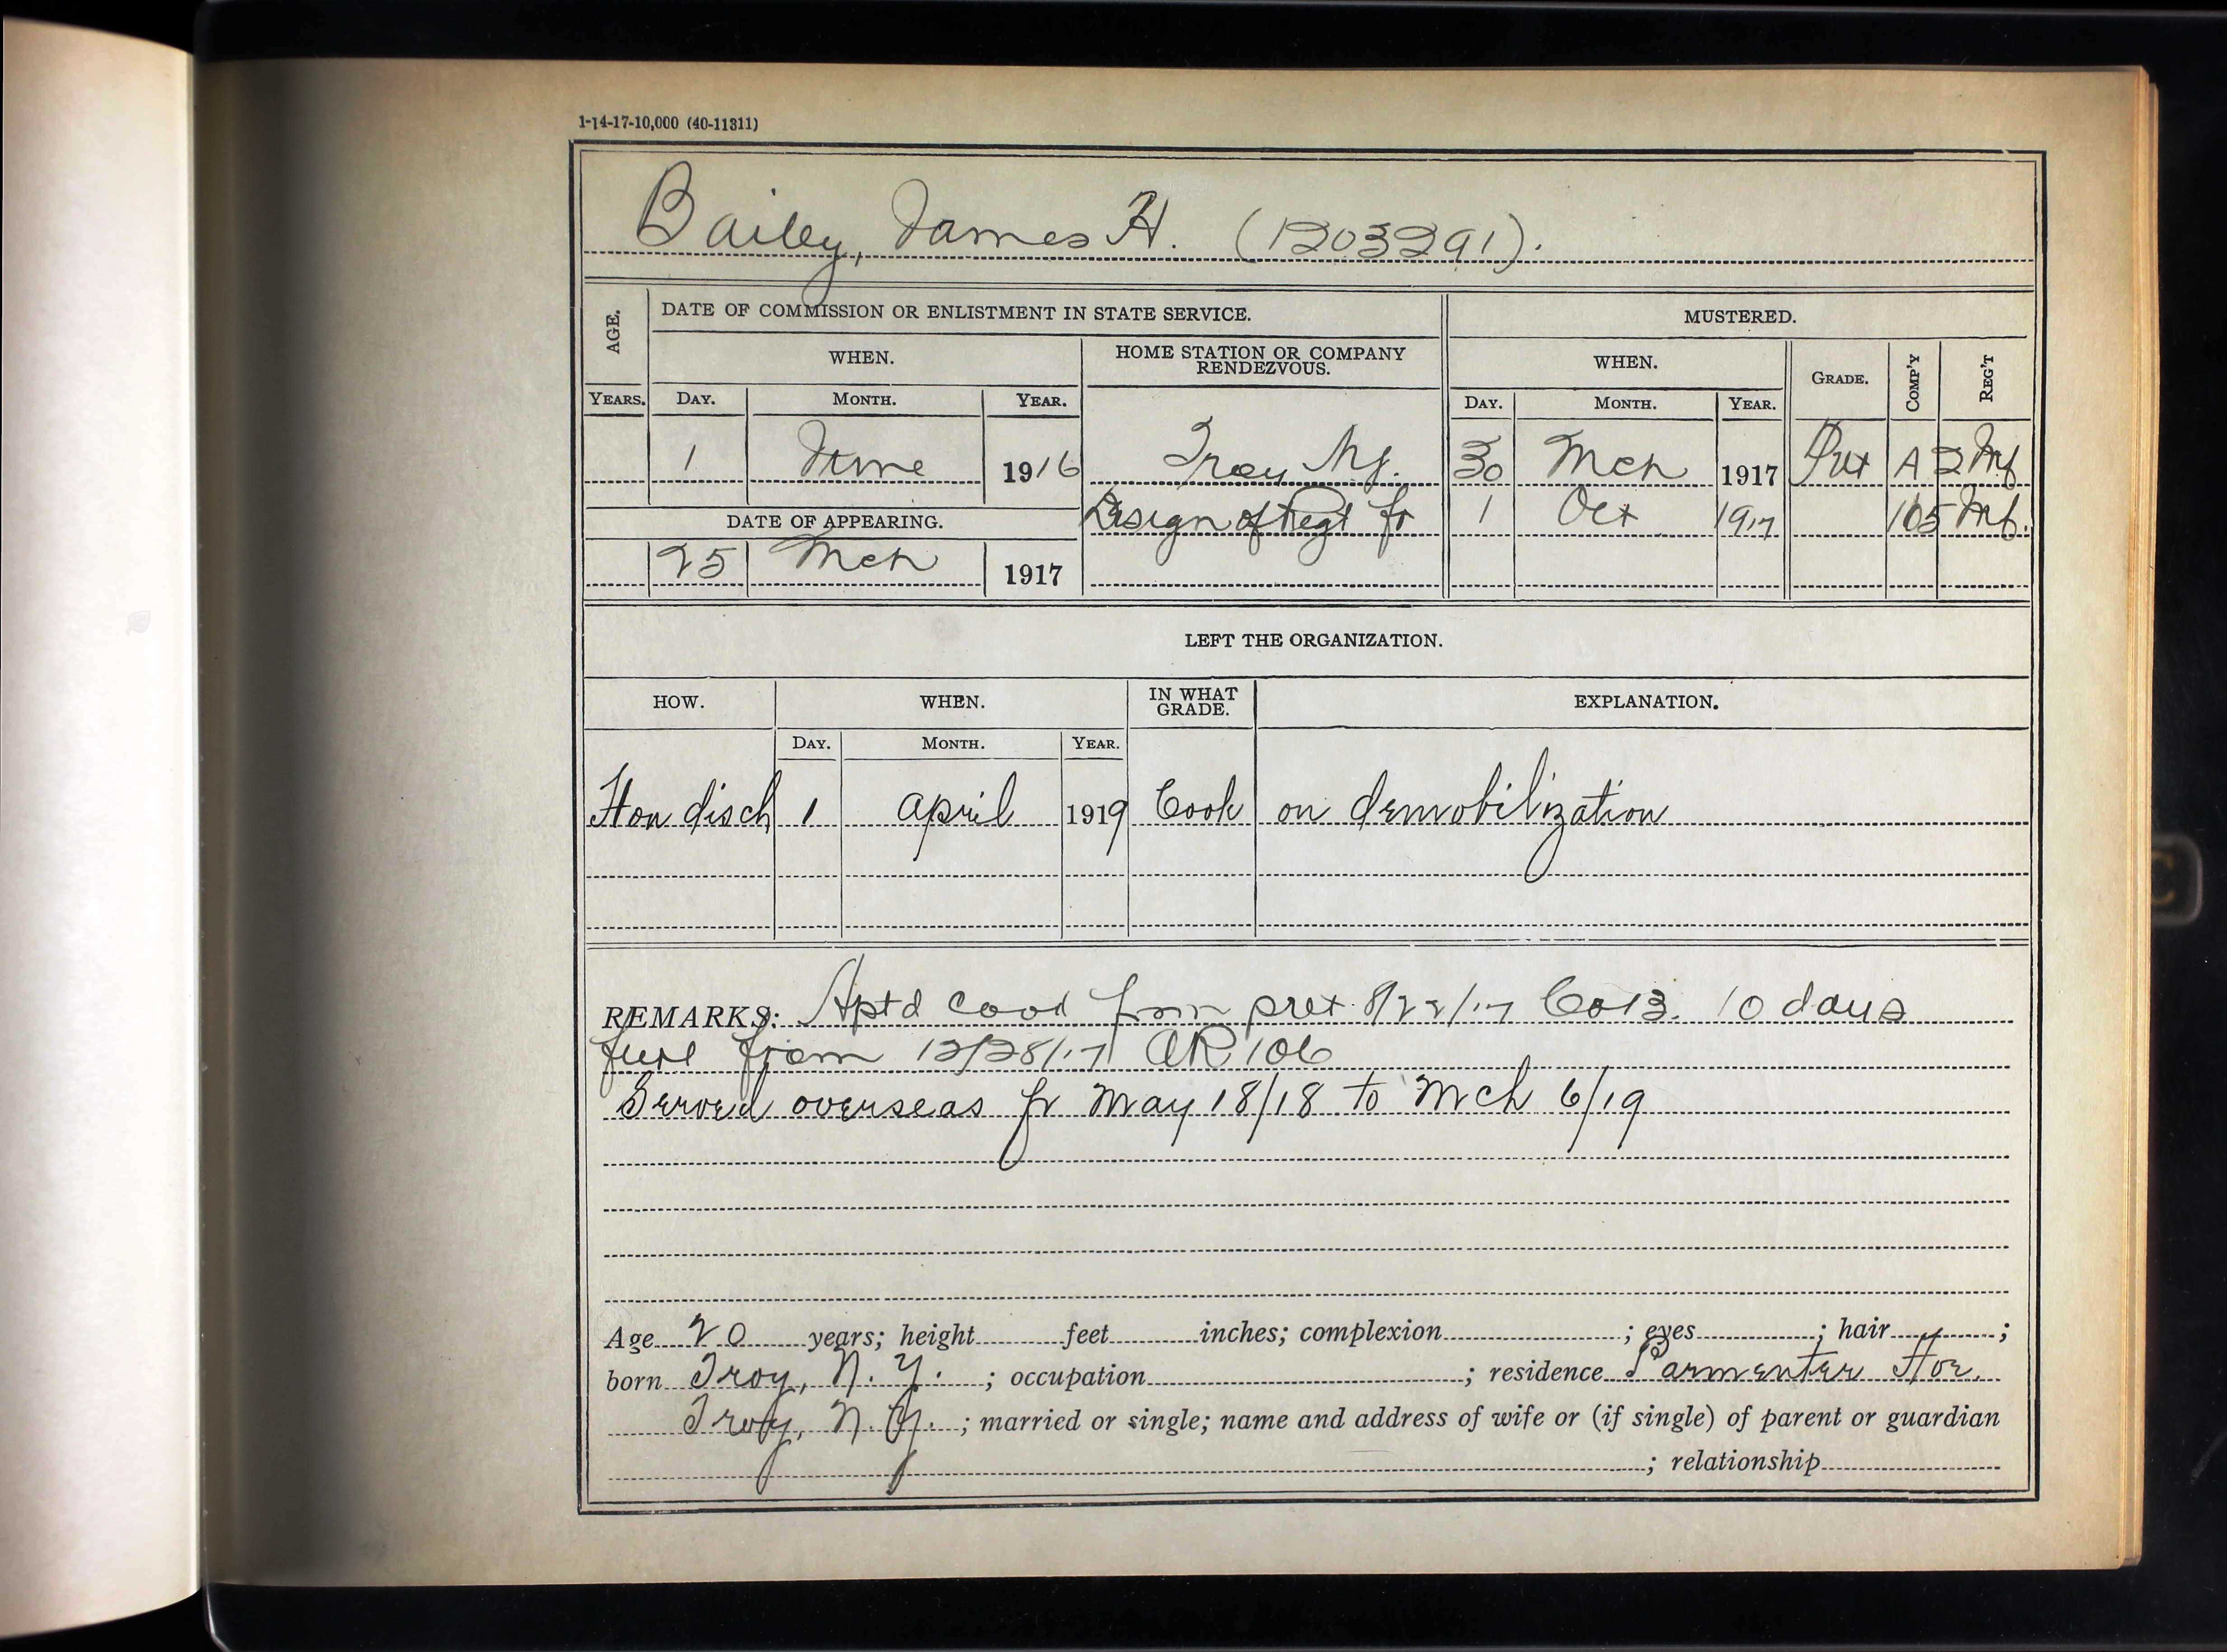 1-14-17-10,000 (40-11311)
Bailey, James H. (1203291).
AGE. DATE OF COMMISSION OR ENLISTMENT IN STATE SERVICE. MUSTERED.
WHEN. HOME STATION OR COMPANY RENDEZVOUS. WHEN. GRADE. COMP'Y REG'T
YEARS. DAY. MONTH. YEAR. DAY. MONTH. YEAR.
1 June 1916 Troy NY. 30 Mch 1917 Pvt A 2 Inf
DATE OF APPEARING. Design of Regt fr 1 Oct 1917 105 Inf.
25 Mch 1917
LEFT THE ORGANIZATION.
HOW. WHEN. IN WHAT GRADE. EXPLANATION.
DAY. MONTH. YEAR.
Hon disch 1 april 1919 Cook on demobilization
REMARKS: Aptd Cook from pvt 8/22/17 Co B. 10 days
furl from 12/28/17 106
Served overseas fr May 18/18 to Mch 6/19
Age 20 years; height feet inches; complexion ; eyes ; hair ;
born Troy, N.Y. ; occupation ; residence Parmenter
Troy, N.Y. ; married or single; name and address of wife or (if single) of parent or guardian
; relationship